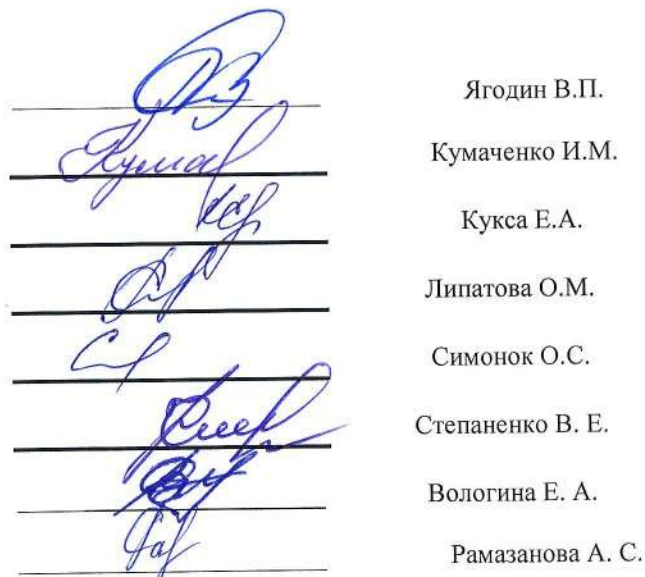 Ягодин В.П.
Кумаченко И.М.
Кукса Е.А.
Липатова О.М.
Симонок О.С.
Степаненко В. Е.
Вологина Е. А.
Рамазанова А. С.